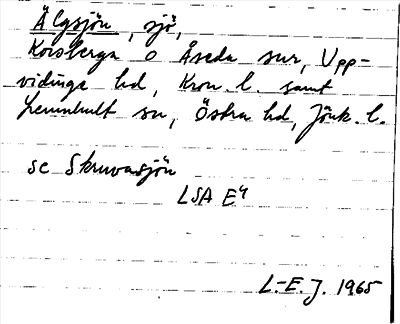 Älgsjön, sjö,
Korsberga o Åseda snr, Upp-
vidinge hd, Kron. l. samt
Lemnhult sn, Östra hd, Jönk. l.
se Skruvasjön
LSA E4
L.-E. J. 1965